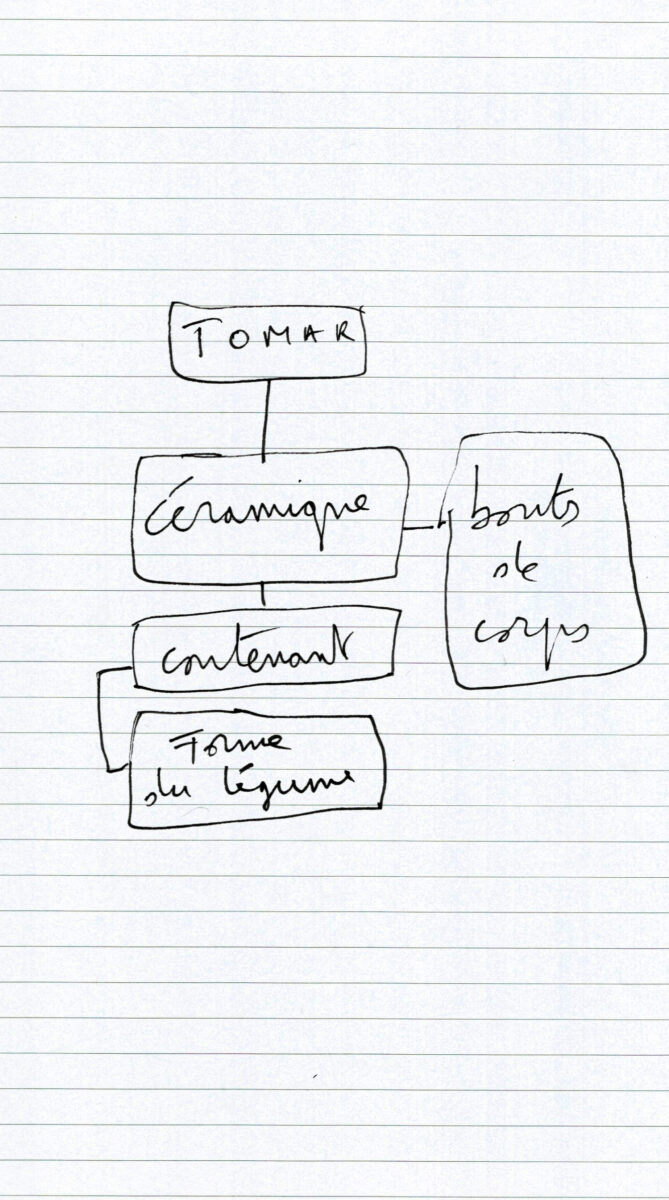 TOMAR
Céramique
bouts
de
corps
contenant
Forme
du légume